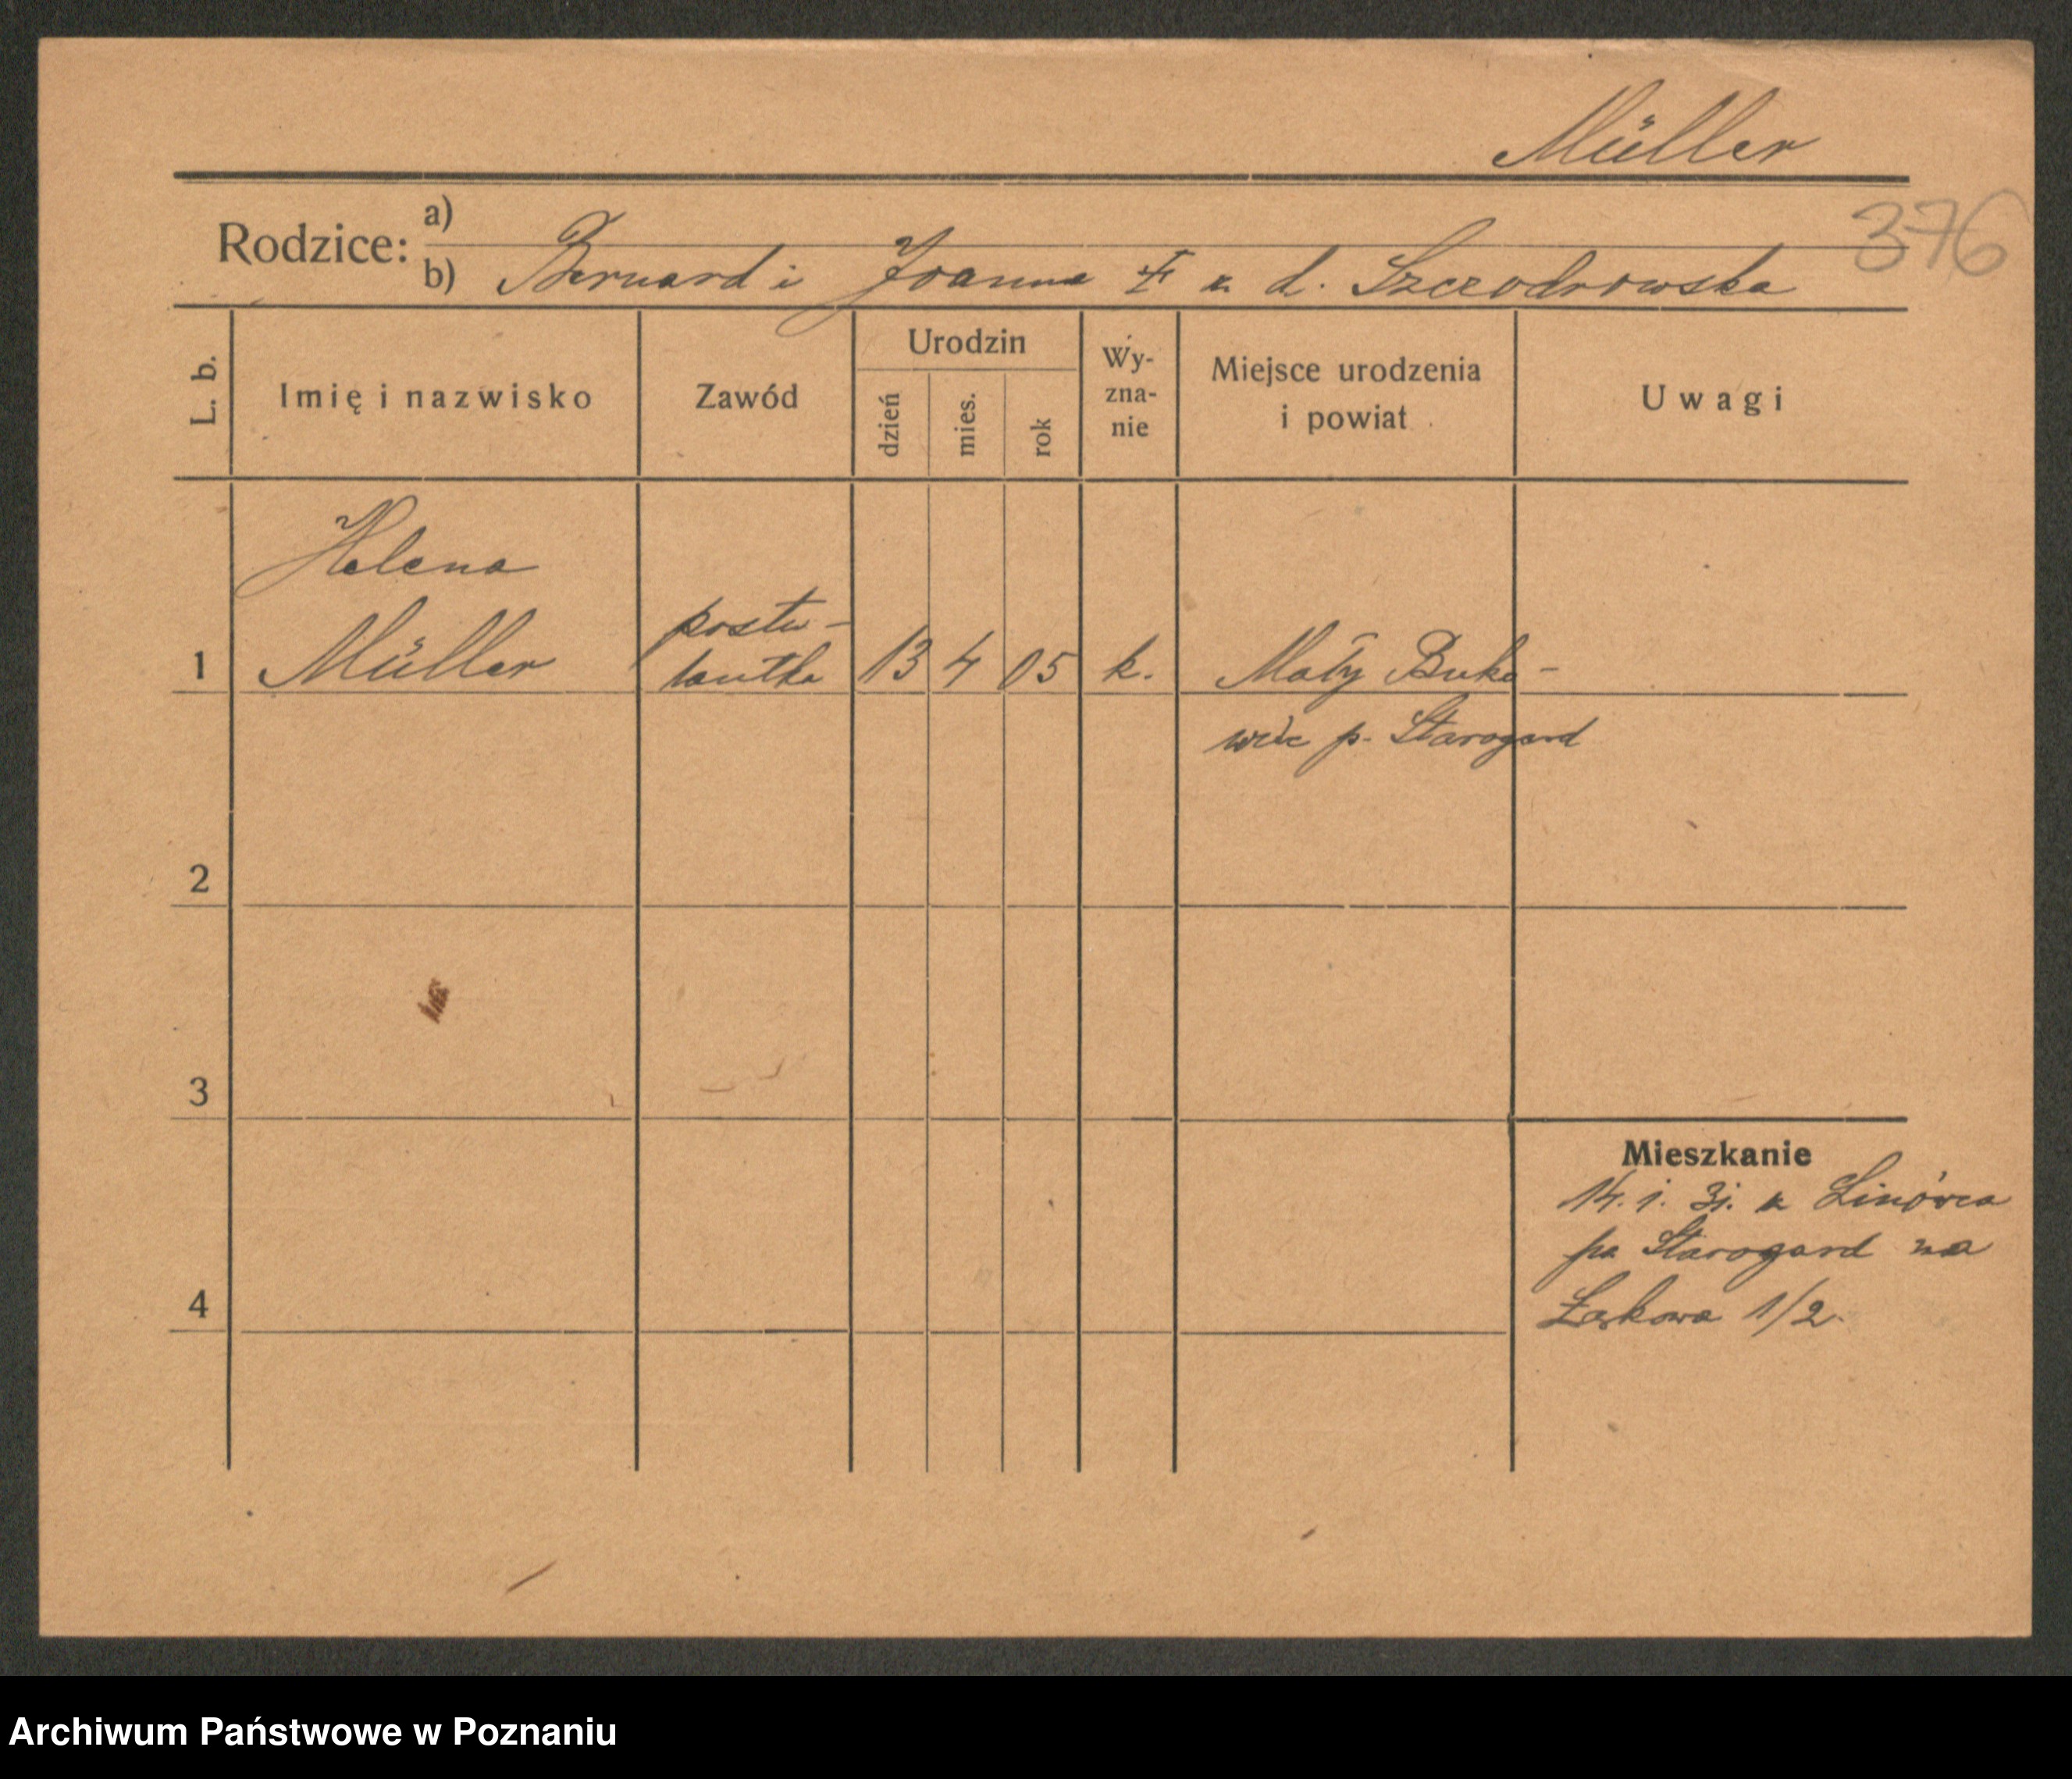 Müller
376
Rodzice:
a)
b) Bernard i Joanna z d. Szczodrowska
L. b.
Imię i nazwisko
Zawód
Urodzin
dzień
mies.
rok
Wy-
zna-
nie
Miejsce urodzenia
i powiat
Uwagi
Helena
1 Müller
postu-
lantka
13 4 05 k. Mały Buko-
wiec p. Starogard
2
3
4
Mieszkanie
14. 1. 31. z Linówca
pa Starogard na
Łąkowa 1/2.
Archiwum Państwowe w Poznaniu